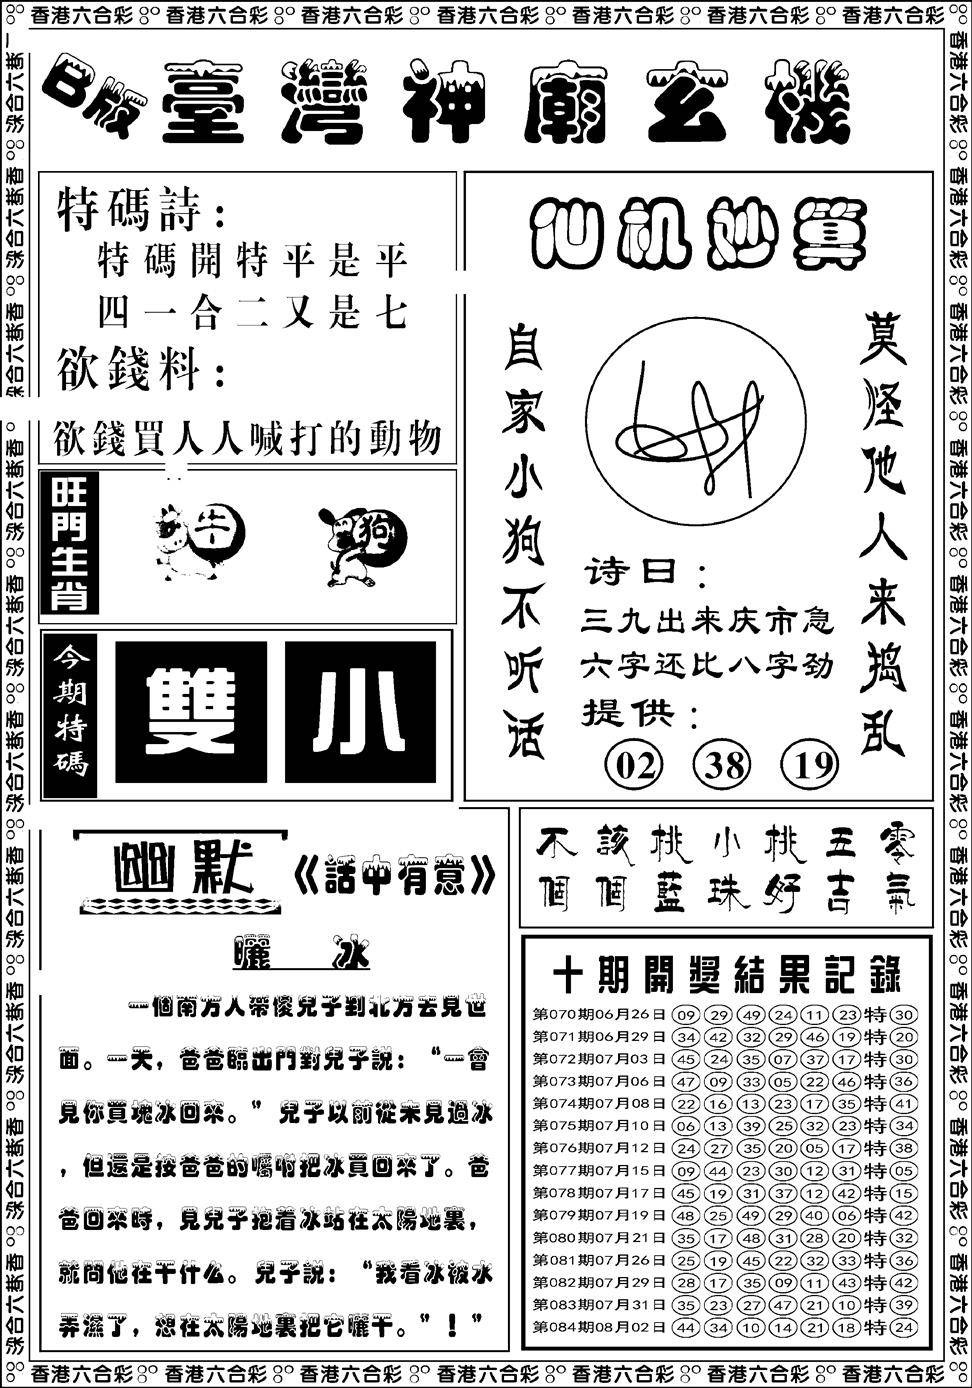 香港六合彩 香港六合彩 香港六合彩 香港六合彩 香港六合彩 香港六合彩 香港六合彩
B版 臺灣神廟玄機
特碼詩:
特碼開特平是平
四一合二又是七
欲錢料:
欲錢買人人喊打的動物
旺門生肖
牛
狗
今期特碼
雙
小
仙机妙算
自家小狗不听话
莫怪他人来捣乱
诗日:
三九出来庆市急
六字还比八字劲
提供:
02 38 19
不該桃小桃五零
個個藍珠好吉氣
幽默《話中有意》
曬冰
一個南方人帶傻兒子到北方去見世
面。一天，爸爸臨出門對兒子說：“一會
見你買塊冰回來。”兒子以前從未見過冰
，但還是按爸爸的囑咐把冰買回來了。爸
爸回來時，見兒子抱着冰站在太陽地裏，
就問他在干什么。兒子説：“我看冰被水
弄濕了，想在太陽地裏把它曬干。”！”
十期開獎結果記錄
第070期06月26日 09 29 49 24 11 23 特 30
第071期06月29日 34 42 32 29 46 19 特 20
第072期07月03日 45 24 35 07 37 17 特 30
第073期07月06日 47 09 33 05 22 46 特 36
第074期07月08日 22 16 13 23 17 35 特 41
第075期07月10日 06 13 39 25 32 23 特 34
第076期07月12日 24 27 35 20 05 17 特 38
第077期07月15日 09 44 23 30 12 31 特 05
第078期07月17日 45 19 31 37 12 42 特 15
第079期07月19日 48 25 49 29 40 06 特 42
第080期07月21日 35 17 48 31 28 20 特 32
第081期07月26日 25 19 45 22 32 33 特 36
第082期07月29日 28 17 35 09 11 43 特 42
第083期07月31日 35 23 27 47 21 10 特 39
第084期08月02日 44 34 10 14 21 18 特 24
香港六合彩 香港六合彩 香港六合彩 香港六合彩 香港六合彩 香港六合彩 香港六合彩